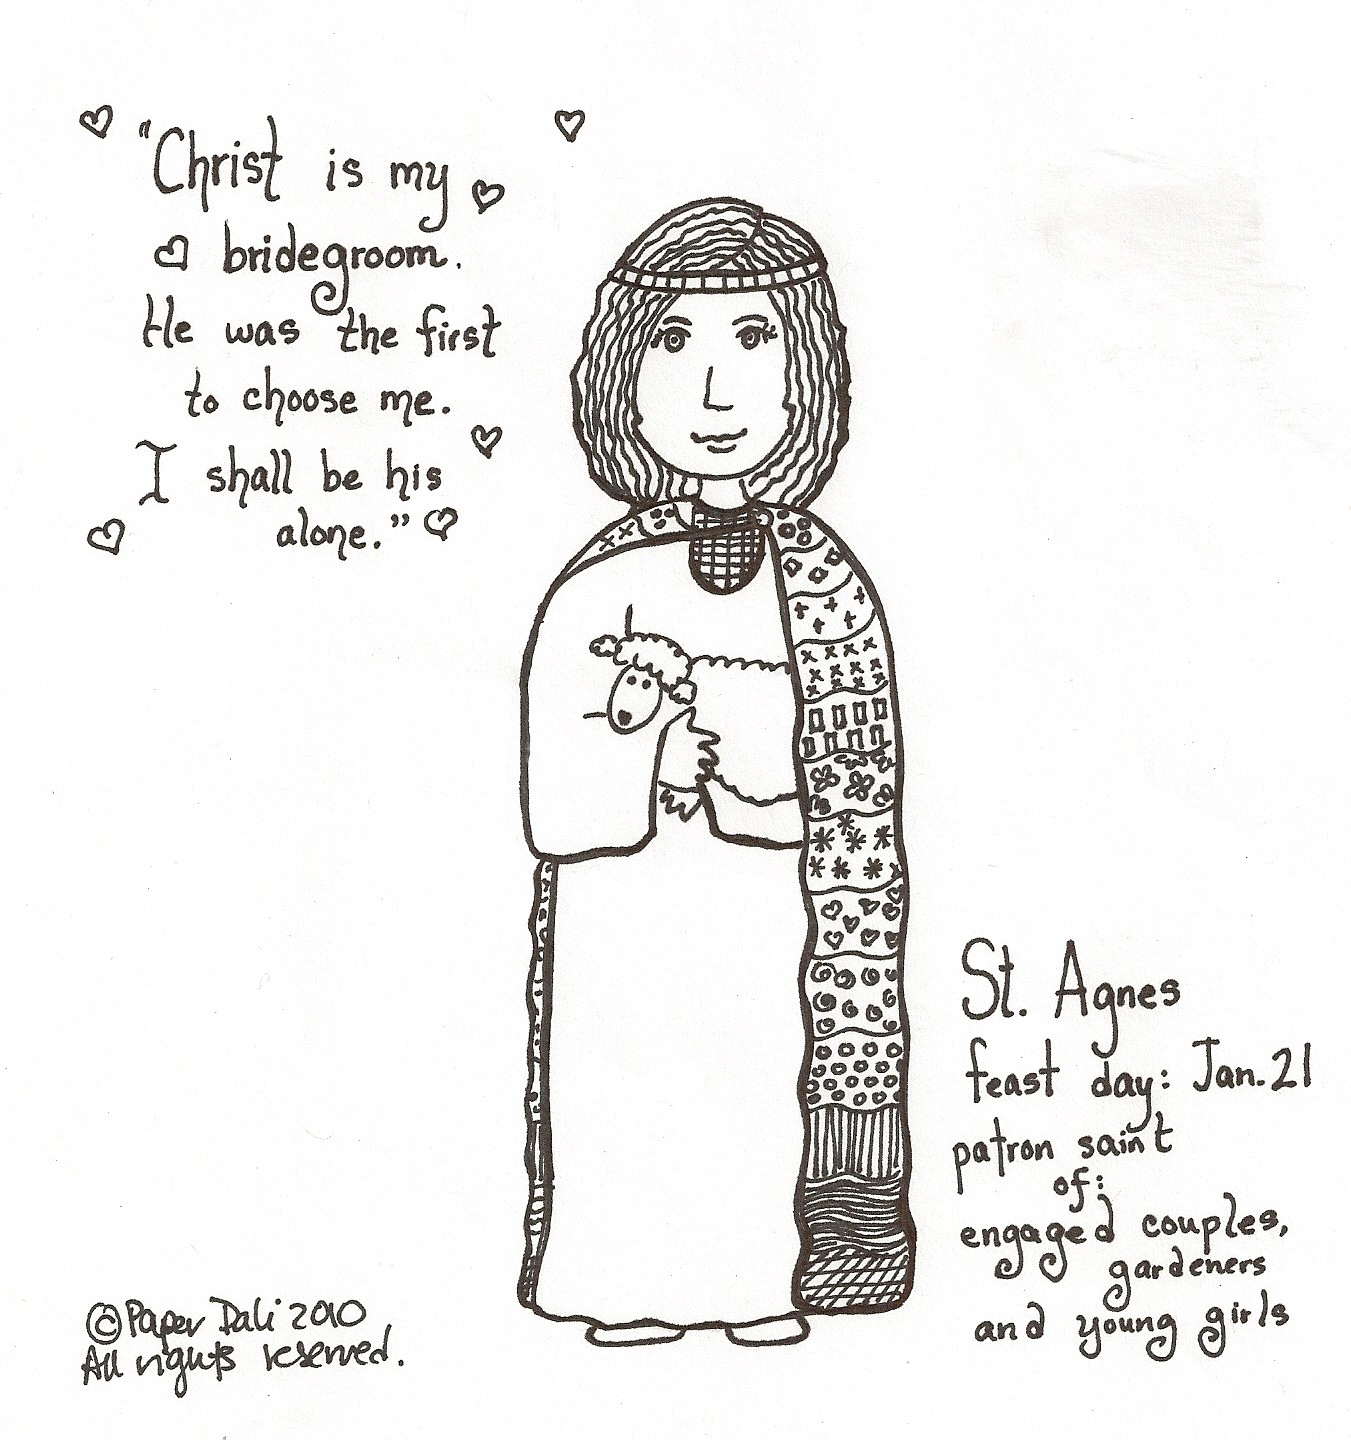 "Christ is my
bridegroom.
He was the first
to choose me.
I shall be his
alone."
St. Agnes
feast day: Jan. 21
patron saint
of:
engaged couples,
gardeners
and young girls
© Paper Dali 2010
All rights reserved.